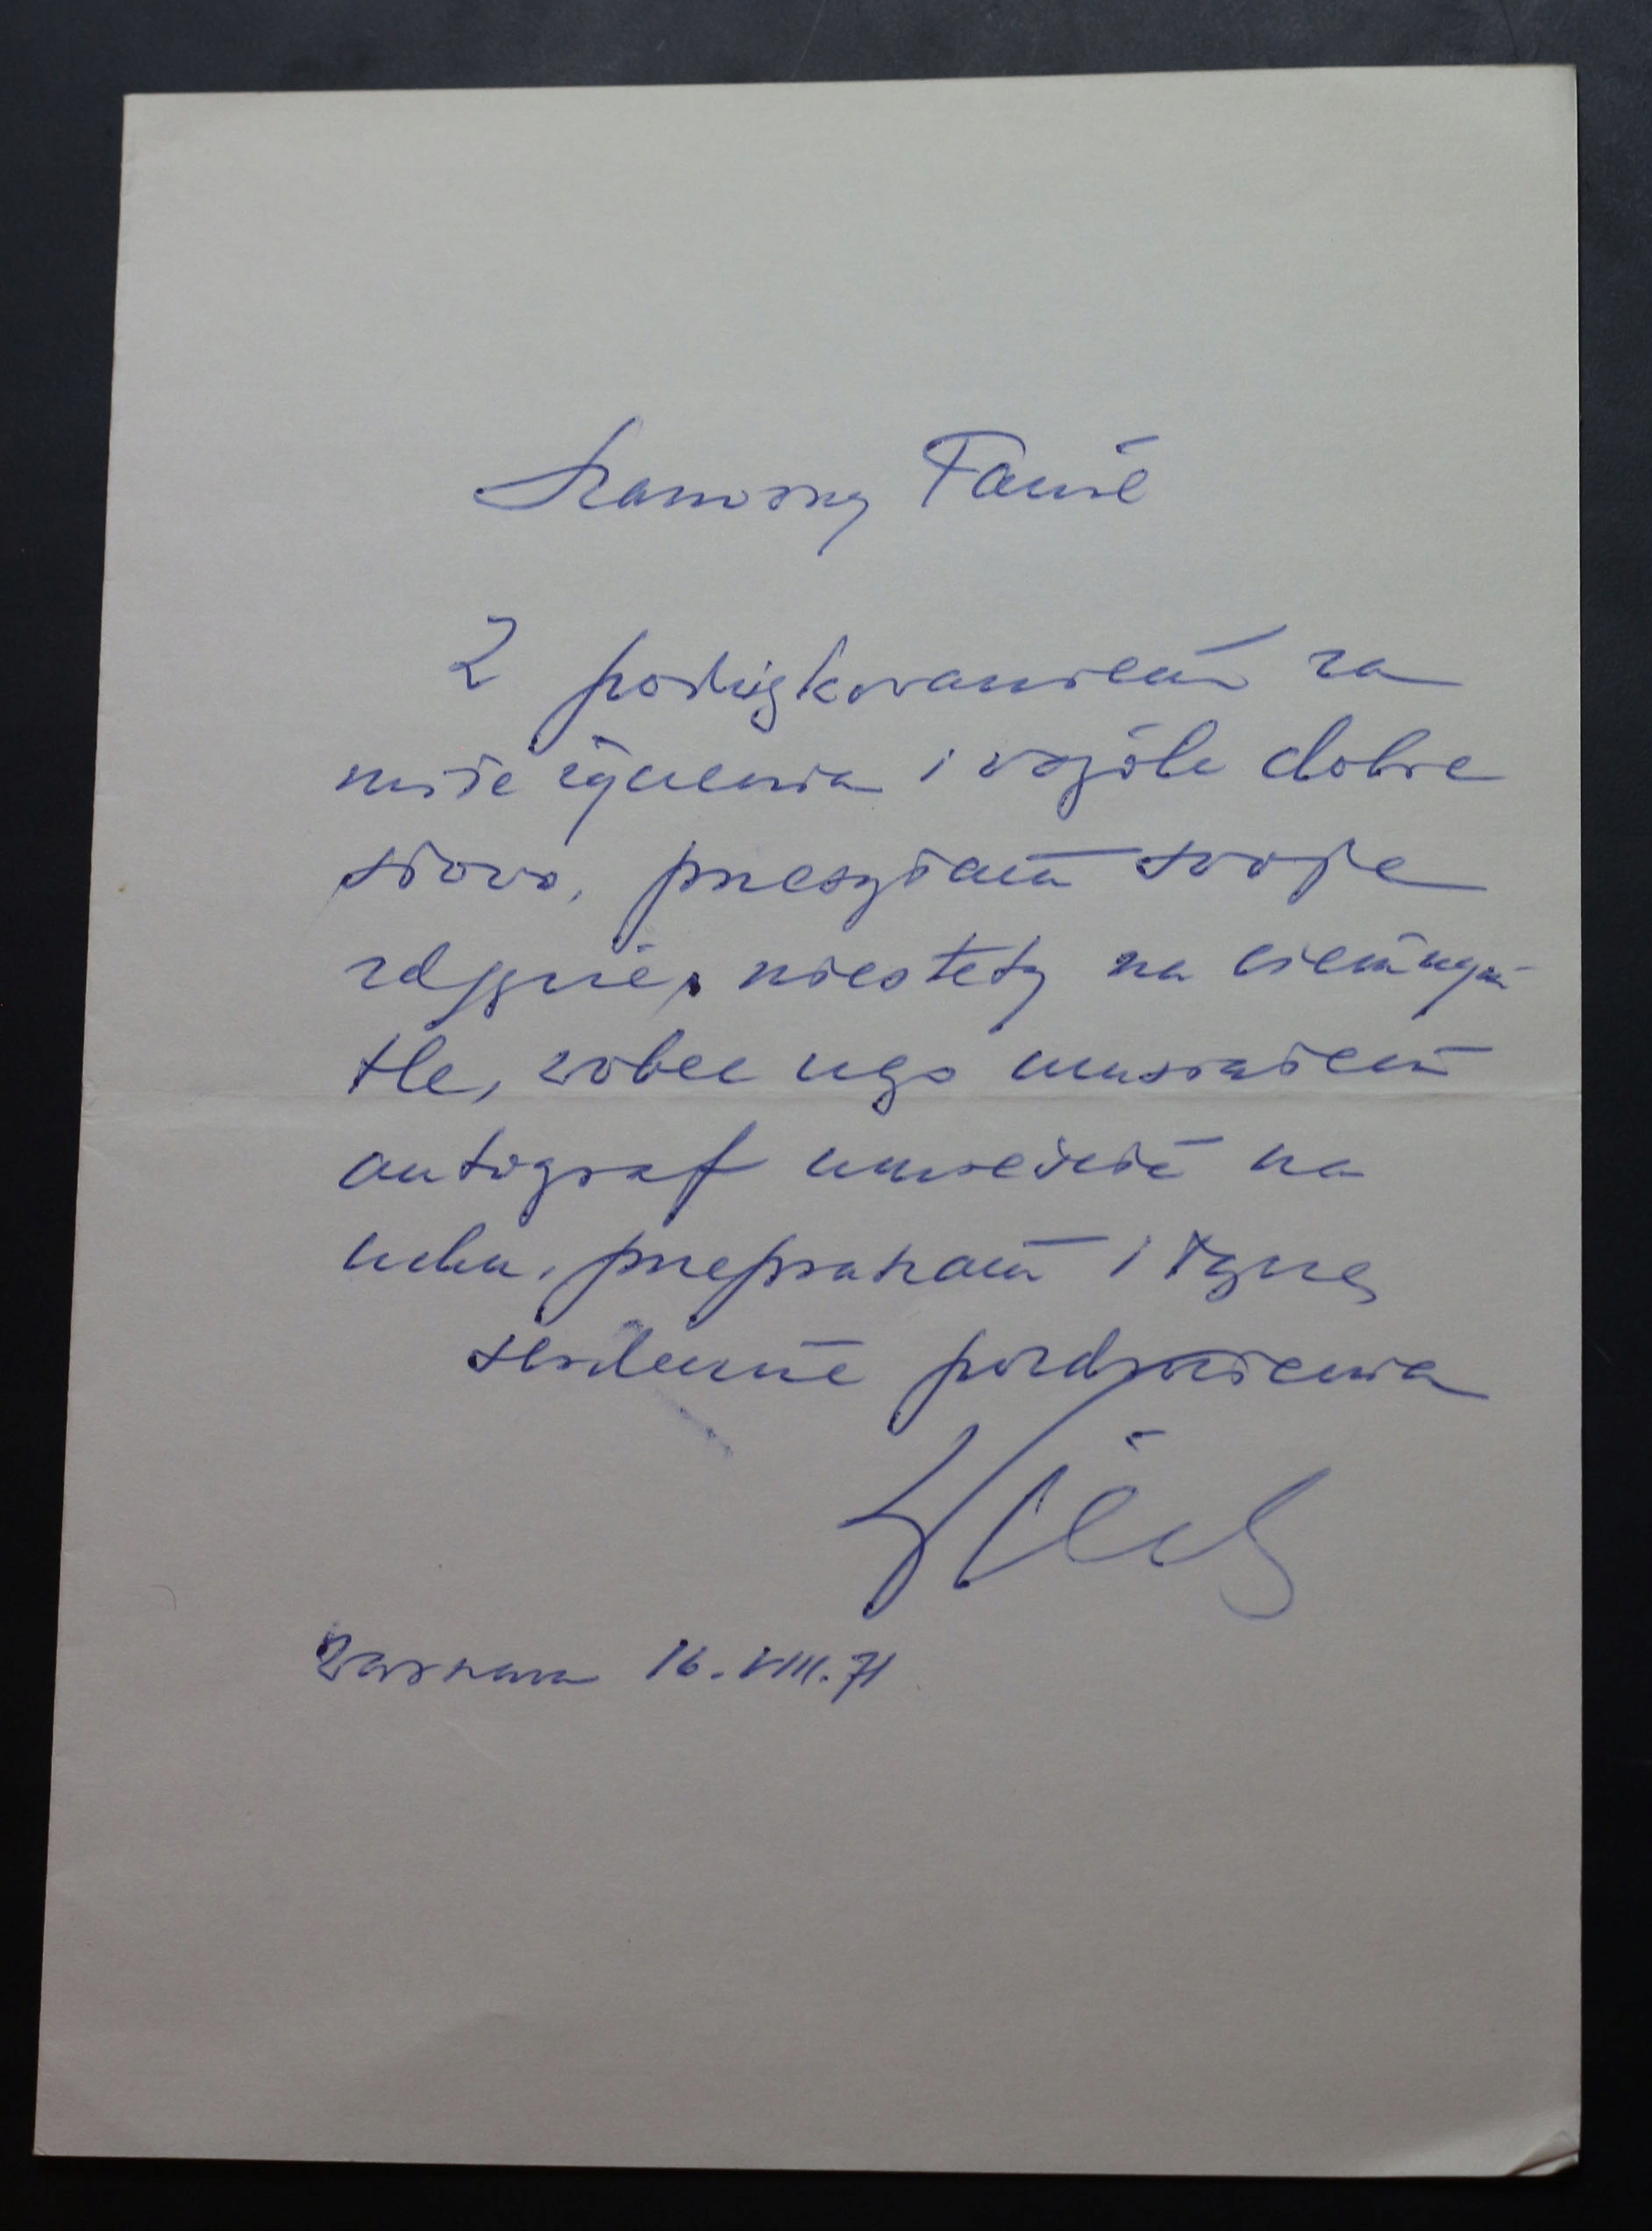 Szanowny Panie
Z podziękowaniem za
miłe życzenia i wogóle dobre
słowo, przesyłam swoje
zdjęcie, niestety na ciemnym
tle, wobec czego musiałem
autograf umieścić na
uchu, przepraszam i łączę
serdeczne pozdrowienia
Warszawa 16.VIII.71